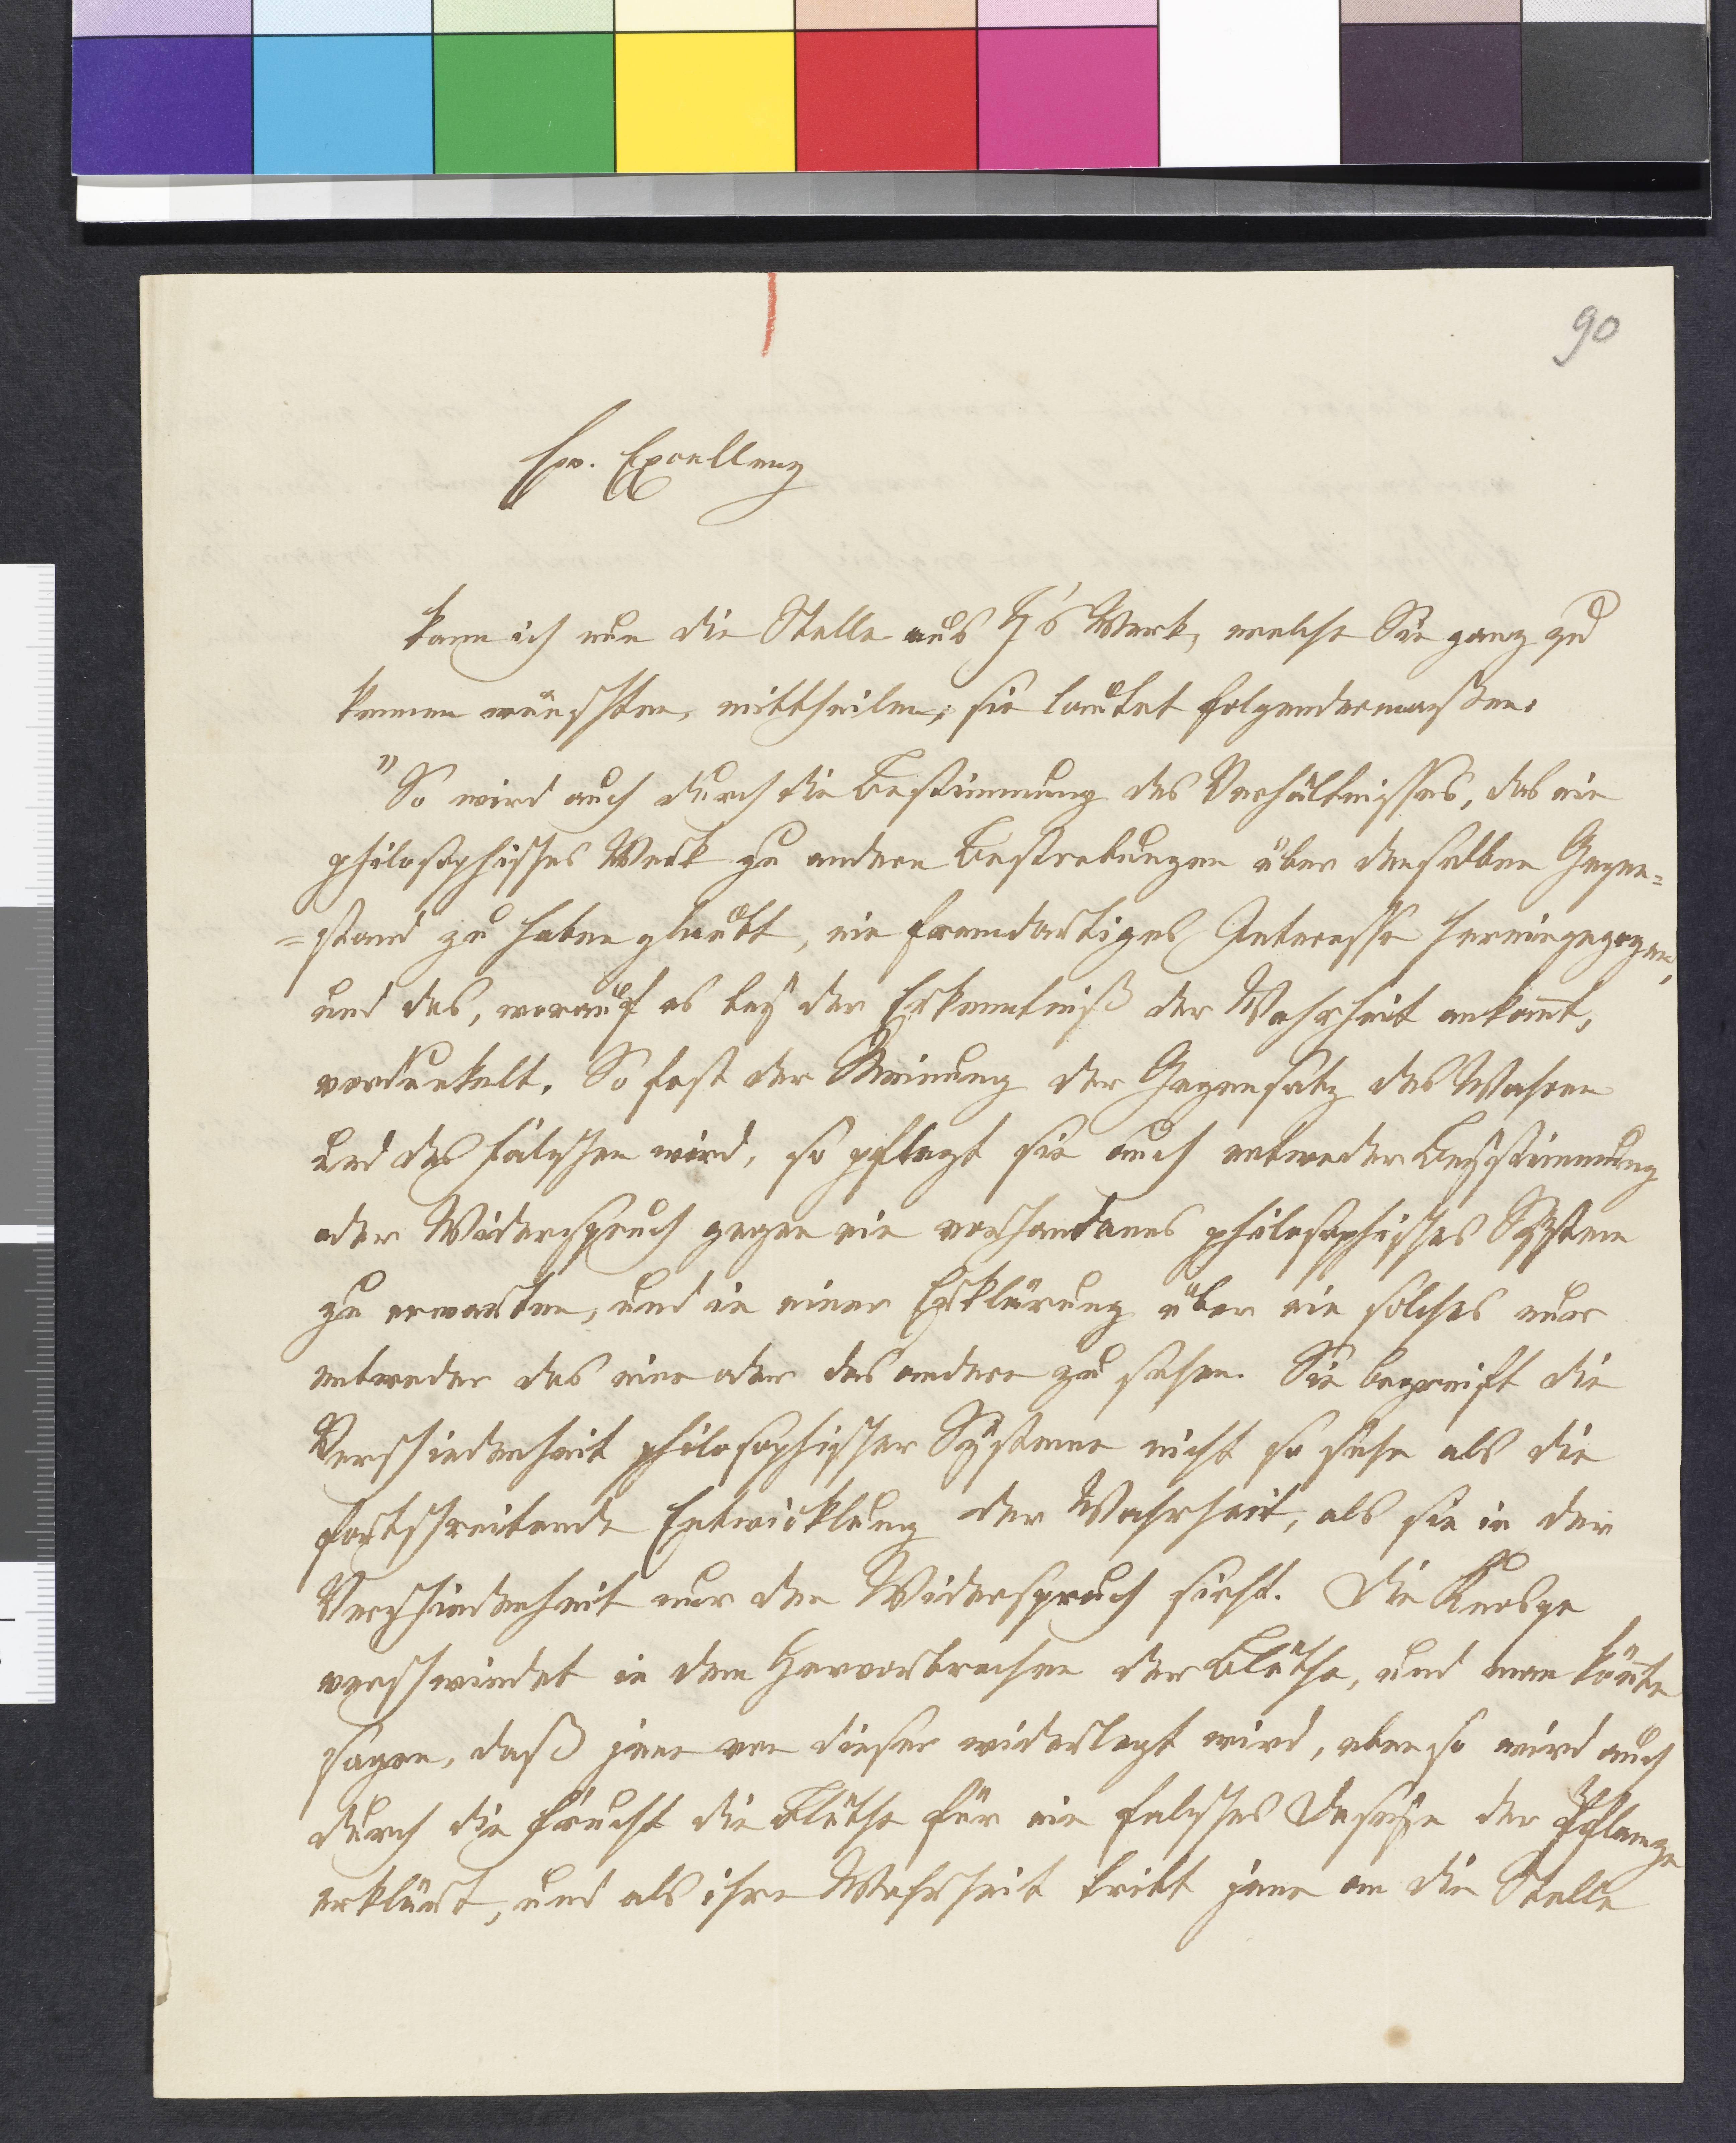 90
Ew. Excellenz
kann ich nun die Stelle aus H's Werk, welche Sie ganz zu
kennen wünschten, mittheilen; sie lautet folgendermaßen:
"So wird auch durch die Bestimmung des Verhältnisses, das ein
philosophisches Werk zu andern Bestrebungen über denselben Gegen=
=stand zu haben glaubt, ein fremdartiges Interesse hereingezogen,
und das, worauf es bey der Erkenntniß der Wahrheit ankom̄t,
verdunkelt. So fest der Meinung der Gegensatz des Wahren
und des Falschen wird, so pflegt sie auch entweder Beystimmung
oder Widerspruch gegen ein vorhandenes philosophisches System
zu erwarten, und in einer Erklärung über ein solches nur
entweder das eine oder das andere zu sehen. Sie begreift die
Verschiedenheit philosophischer Systeme nicht so sehr als die
fortschreitende Entwicklung der Wahrheit, als sie in der
Verschiedenheit nur den Widerspruch sieht. Die Knospe
verschwindet in dem Hervorbrechen der Blüthe, und man kön̄te
sagen, daß jene von dieser widerlegt wird, eben so wird auch
durch die Frucht die Blüthe für ein falsches Daseyn der Pflanze
erklärt, und als ihre Wahrheit tritt jene an die Stelle